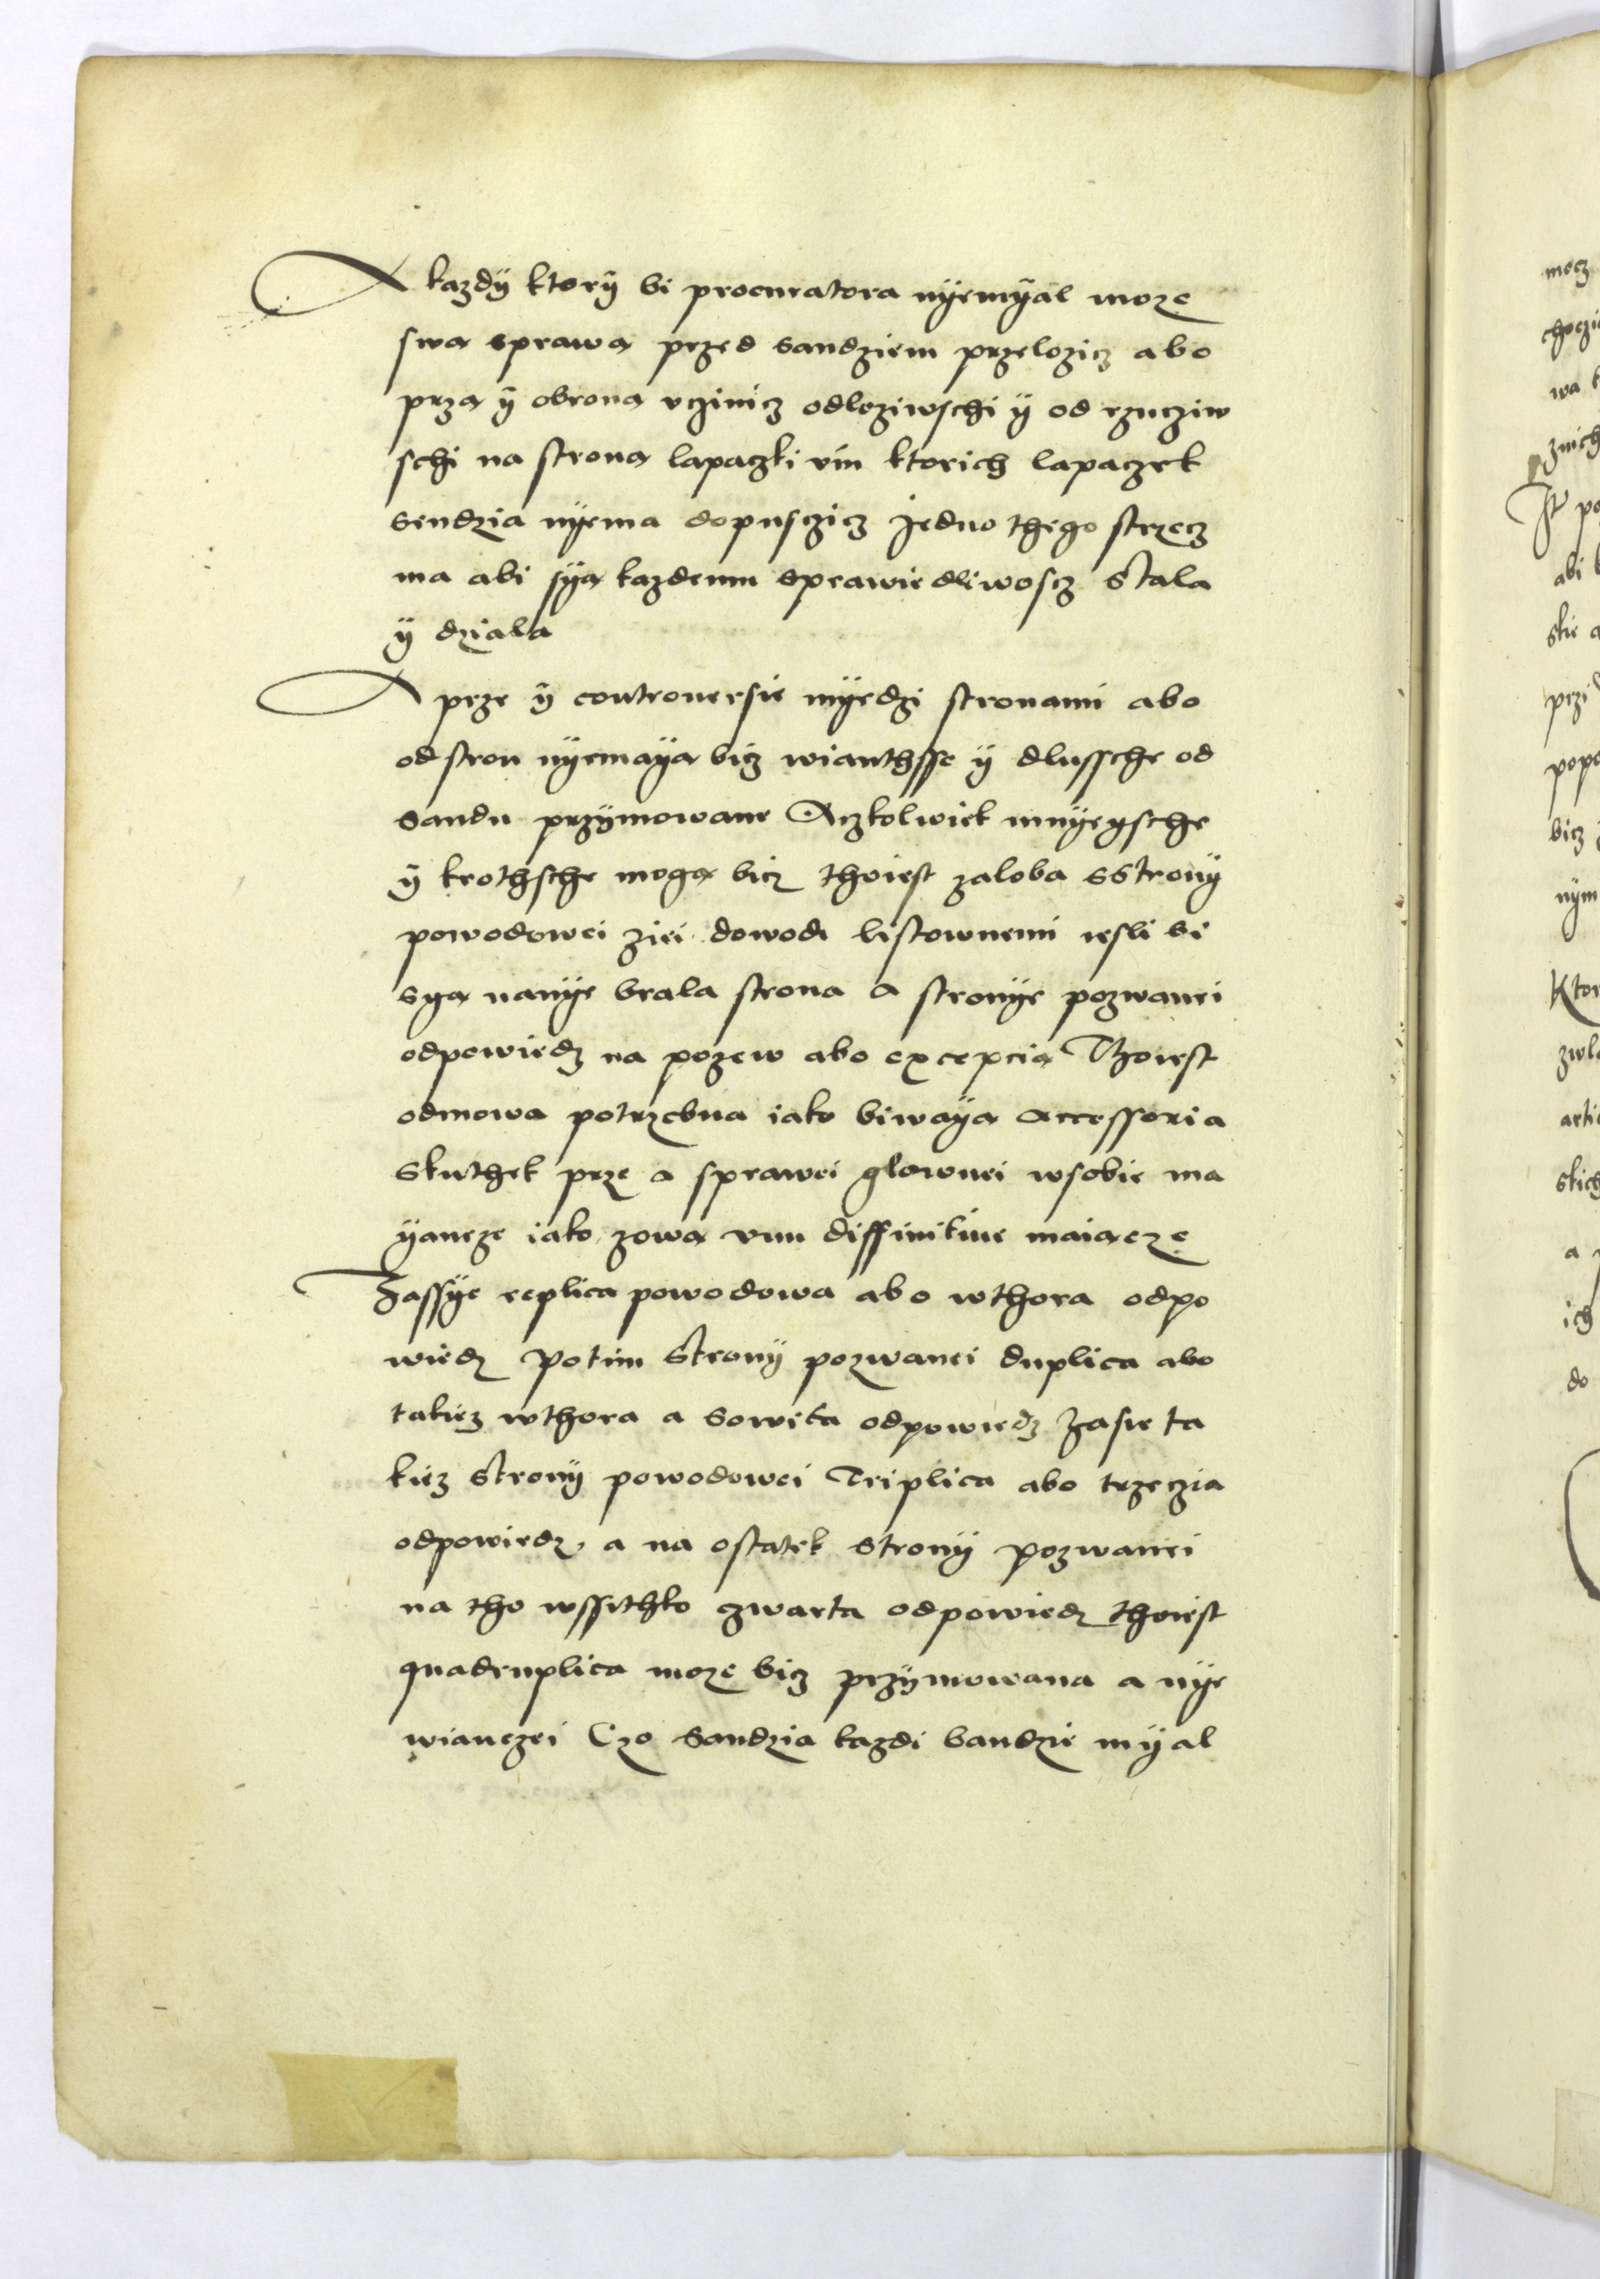 A kazdÿ ktorÿ bi procuratora nÿemÿal moze
swą sprawą przed sandziem przelozicz abo
przą ÿ obroną vczinicz odlozÿwschi ÿ od rzucziw
schi na stroną lapaczki vin ktorich lapaczek
sendzia nÿema dopusczicz Jedno thego strzecz
ma abi sÿą kazdemu sprawiedliwoscz stala
ÿ dziala
A prze ÿ controuersie mÿedzi stronami abo
od stron nÿemaÿą bicz wianthsse ÿ dlussche od
sandu przÿmowane Aczkolwiek mnÿeÿsche
ÿ krothsche mogą bicz thoiest zaloba s stronÿ
powodowei ziei dowodi listownemi iesli bi
sÿą nanÿe brala strona A stronÿe pozwanei
odpowiedz na pozew abo excepcią Thoiest
odmowa potrzebna iako biwaÿą accessoria
skuthek prze a sprawei glownei wsobie ma
ÿancze iako zową vim diffinitiue maiącze
Zassÿe replica powodowa abo wthora odpo
wiedz Potim stronÿ pozwanei duplica abo
takiez wthora a sowita odpowiedz Zasie ta
kiez stronÿ powodowei Triplica abo trzeczia
odpowiedz, a na ostatek stronÿ pozwanei
na tho wssithko czwarta odpowiedz thoiest
quadruplica moze bicz przÿmowana a nÿe
wianczei Czo sandzia kazdi bandzie mÿal
mocz
wa
znich
It po
abi
skie
przi
popo
bicz
nÿm
Ktor
zwla
arti
skich
a
ich
do